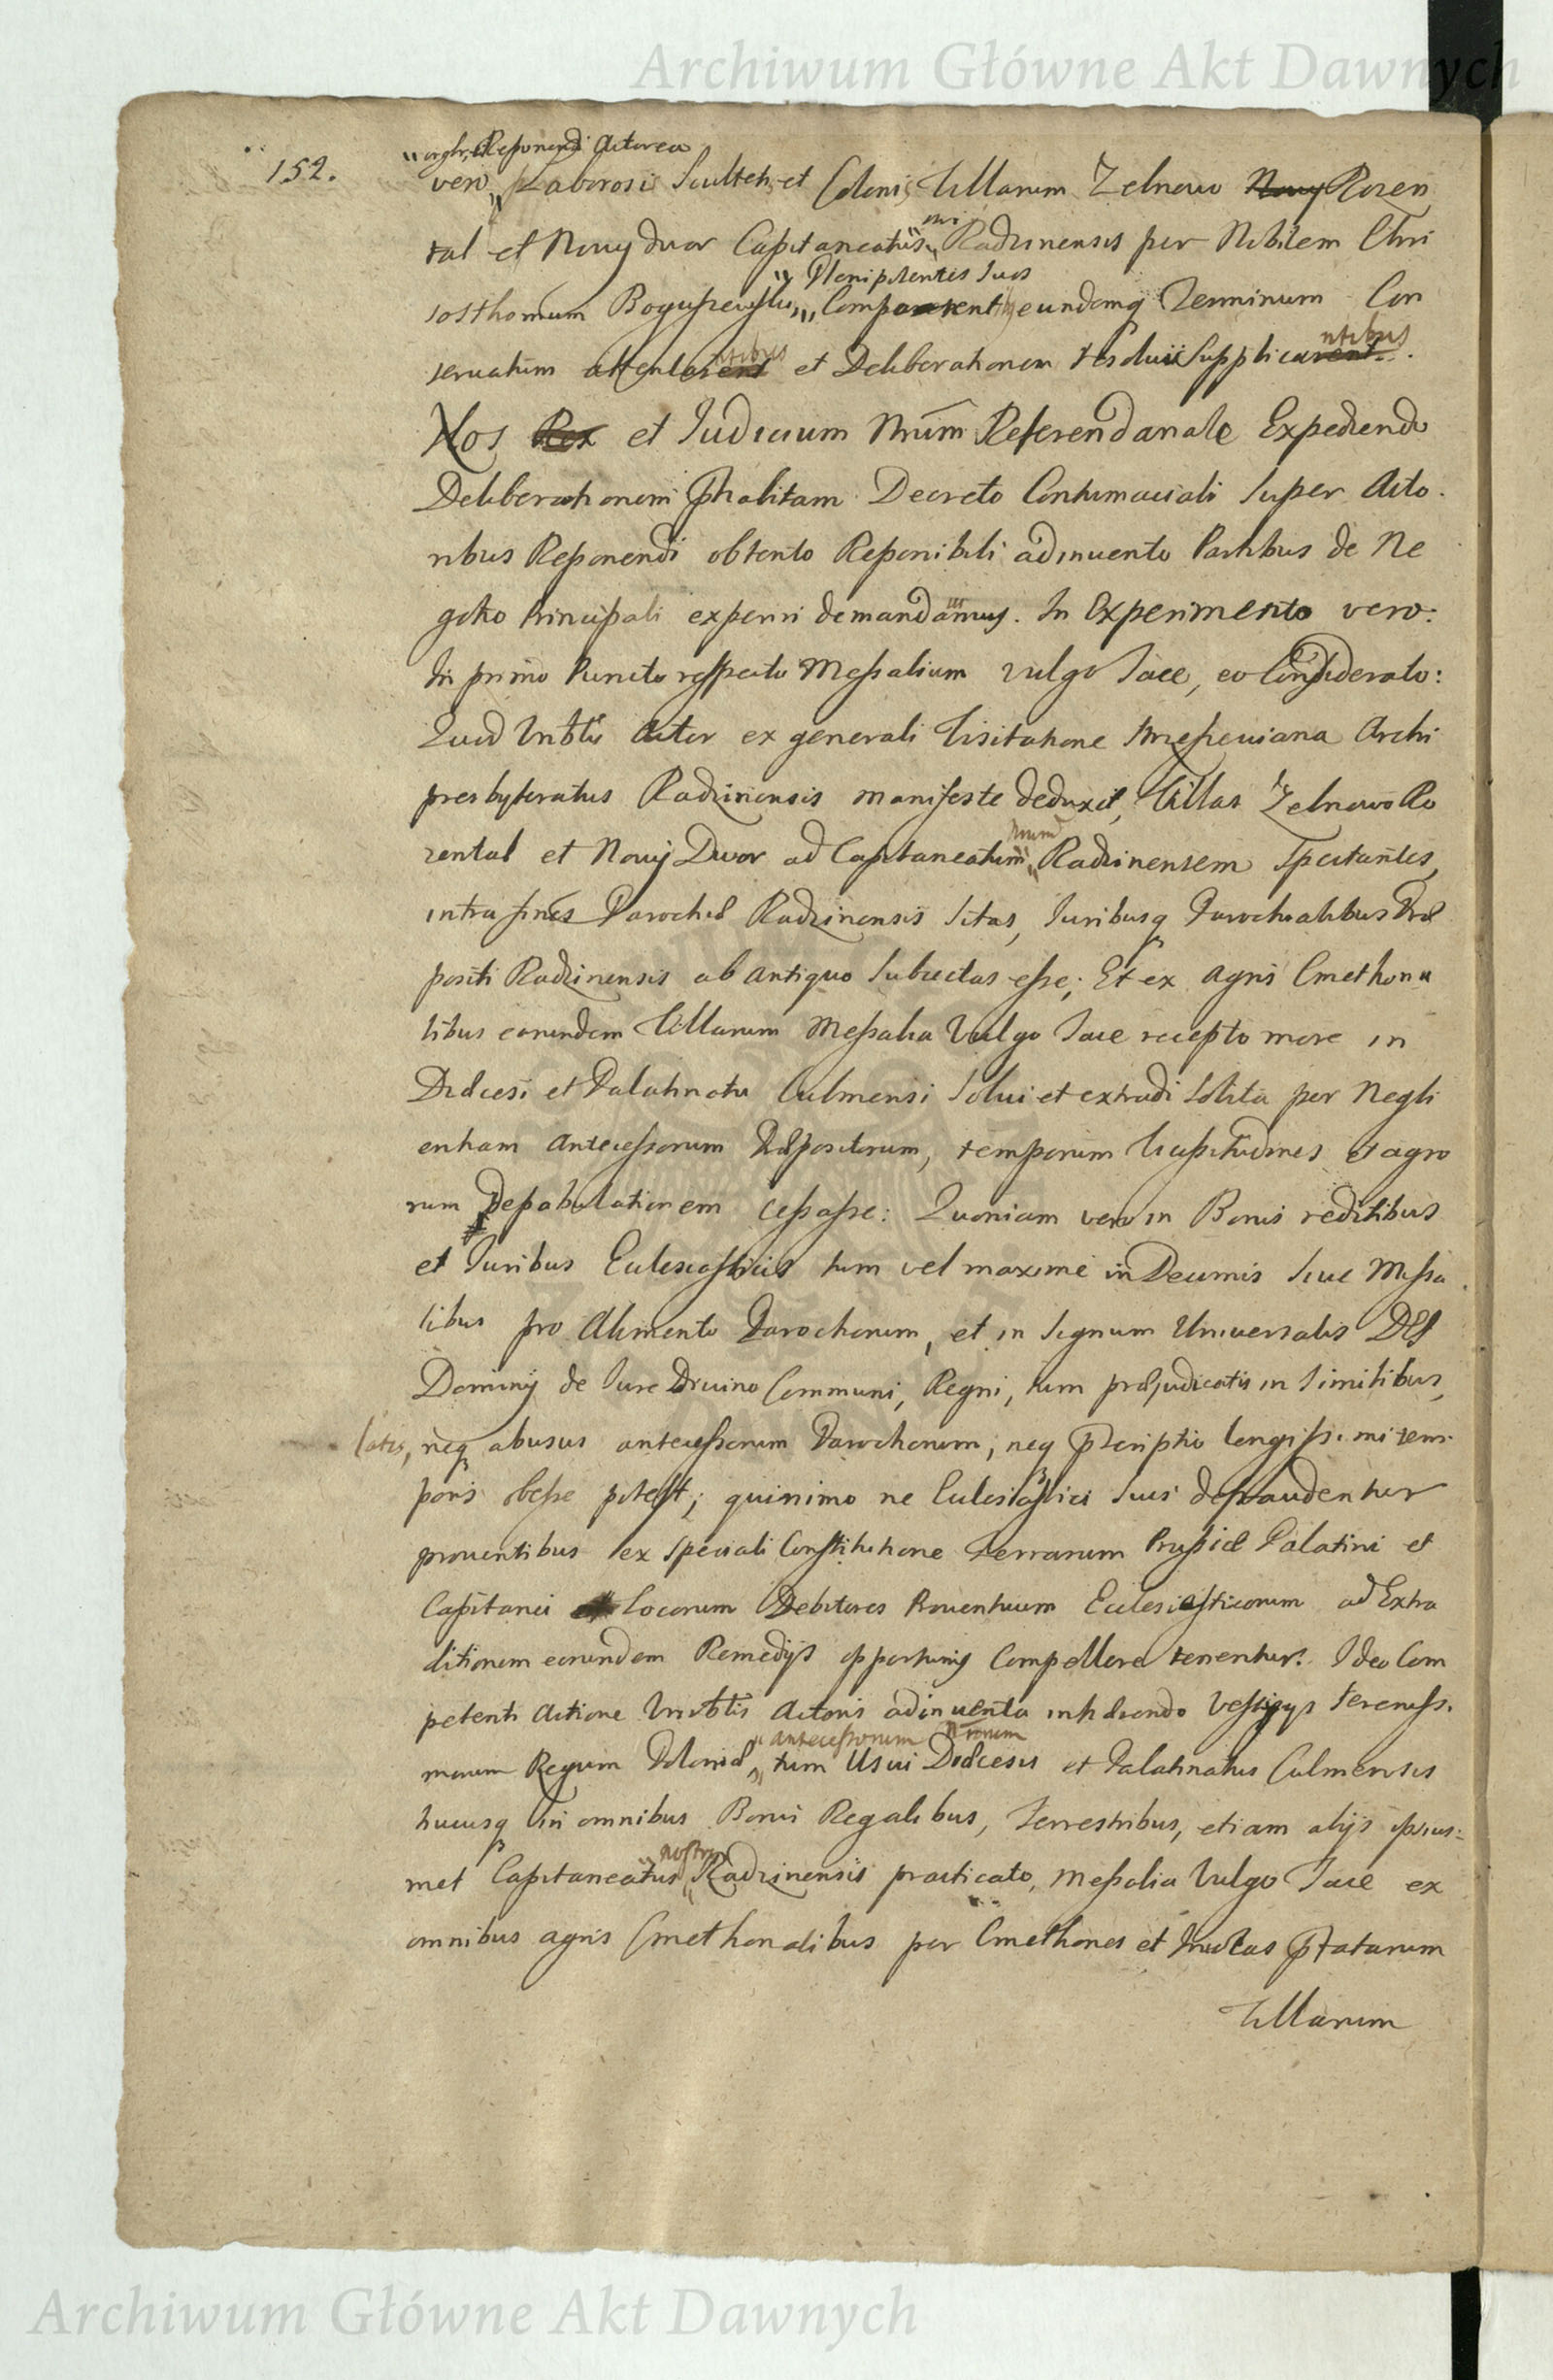 Archiwum Główne Akt Dawnych
152.
Reponendi Actorea
vero, Laboriosis Scultetis et Colonis Villarum Zelnowo Nowy Rozen
tal et Nowy dwor Capitaneatus nri Radzinensis per Nobilem Chri
Plenipotentes suos
sosthomum Comparent eundemq Terminum Con
servatum attentarent ntibus et Deliberationem resolui Supplicarent ntibus.
Nos Rex et Judicium Nrum Referendariale Expediendo
Deliberationem Phabitam Decreto Contumaciali super Acto
ribus Reponendi obtento Reponibili adinvento Partibus de Ne
gotio Principali experiri demandamus. In Experimento vero:
In primo Puncto respectu Messalium vulgo Sace, eo Considerato:
Quod Vnbtis Actor ex generali Visitatione Archi
presbyteratus Radzinensis manifeste deduxit, Villas Zelnowo Ro
nrum
zental et Nowy Dwor ad Capitaneatum Radzinensem Spectantes,
intra fines Parochiæ Radzinensis sitas, Juribusq Parochialibus Præ
positi Radzinensis ab antiquo Subiectas esse; Et ex agris Cmethona
libus earundem Villarum Messalia Vulgo Sace recepto more in
Diæcesi et Palatinatu Culmensi Solui et extradi Solita per Negli
entiam antecessorum Præpositorum, temporum Vicissitudines et agro
rum Depabulationem cessasse: Quoniam vero in Bonis reditibus
et Juribus Ecclesiasticis tum vel maxime in Decimis siue Messa
libus pro Alimento Parochorum, et in signum Universalis DEI
Dominij de Jure Divino Communi, Regni, tum præjudicatis in similibus,
latis, neq abusus antecessorum Parochorum, neq pscriptio longissimi tem
poris obesse potest; quinimo ne Ecclesiastici suis defraudentur
proventibus ex speciali Constitutione Terrarum Prussiæ Palatini et
Capitanei Locorum Debitores Proventuum Ecclesiasticorum ad Extra
ditionem eorundem Remedijs opportunis Compellere tenentur: Ideo Com
petenti Actione Vnrbtis Actoris adinventa inhærendo Vestigijs Sereniss.
antecessorum Nrorum
morum Regum Poloniæ tum Usui Diæcesis et Palatinatus Culmensis
hucusq in omnibus Bonis Regalibus, Terrestribus, etiam alijs ipsius-
nostri
met Capitaneatus Radzinensis practicato, Messalia Vulgo Sace ex
omnibus agris Cmethonalibus per Cmethones et Incolas pfatarum
Villarum
Archiwum Główne Akt Dawnych